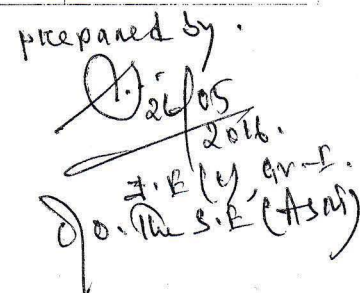 prepared by.
26/05
2016.
J.E (C), Gr-I.
O/o. The S.E (ASR)